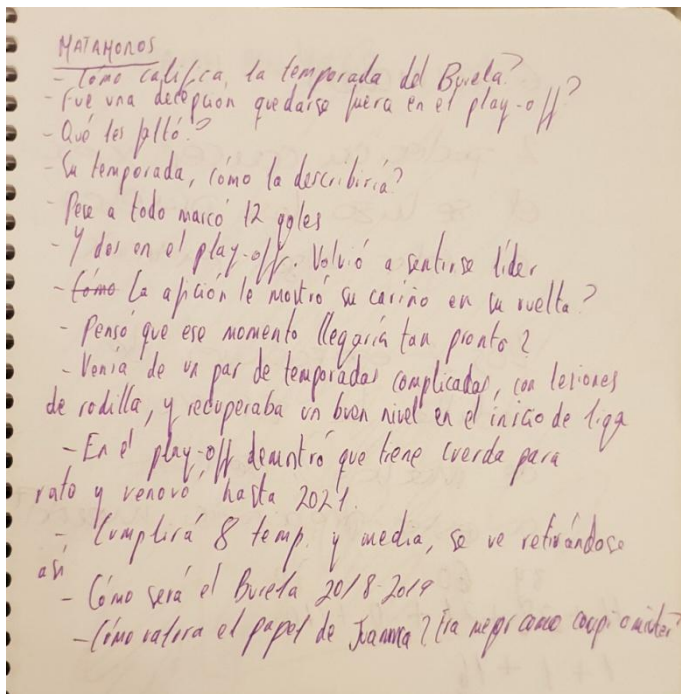 MATAMOROS
- Cómo califica, la temporada del Burela?
- Fue una decepción quedarse fuera en el play-off?
- Qué les faltó?
- Su temporada, cómo la describiría?
- Pese a todo marcó 12 goles
- Y dos en el play-off. Volvió a sentirse líder
- Cómo La afición le mostró su cariño en su vuelta?
- Pensó que ese momento llegaría tan pronto?
- Venía de un par de temporadas complicadas, con lesiones
de rodilla, y recuperaba un buen nivel en el inicio de liga
- En el play-off demostró que tiene cuerda para
rato y renovó hasta 2021
- Cumplirá 8 temp. y media, se ve retirándose
así
- Cómo será el Burela 2018-2019
- Cómo valora el papel de Juanma? Era mejor como